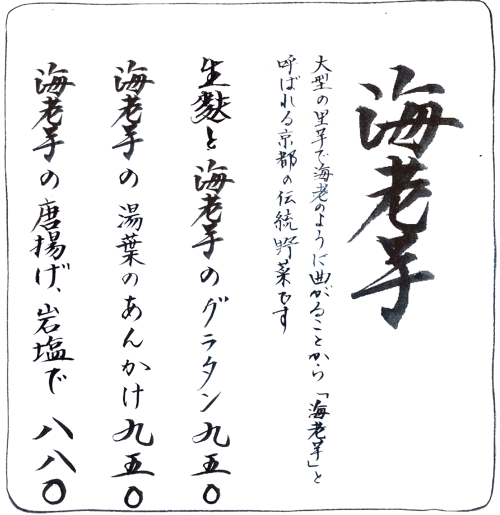 海老芋
大型の里芋で海老のように曲がることから「海老芋」と
呼ばれる京都の伝統野菜です
生麩と海老芋のグラタン九五〇
海老芋の湯葉のあんかけ九五〇
海老芋の唐揚げ、岩塩で八八〇